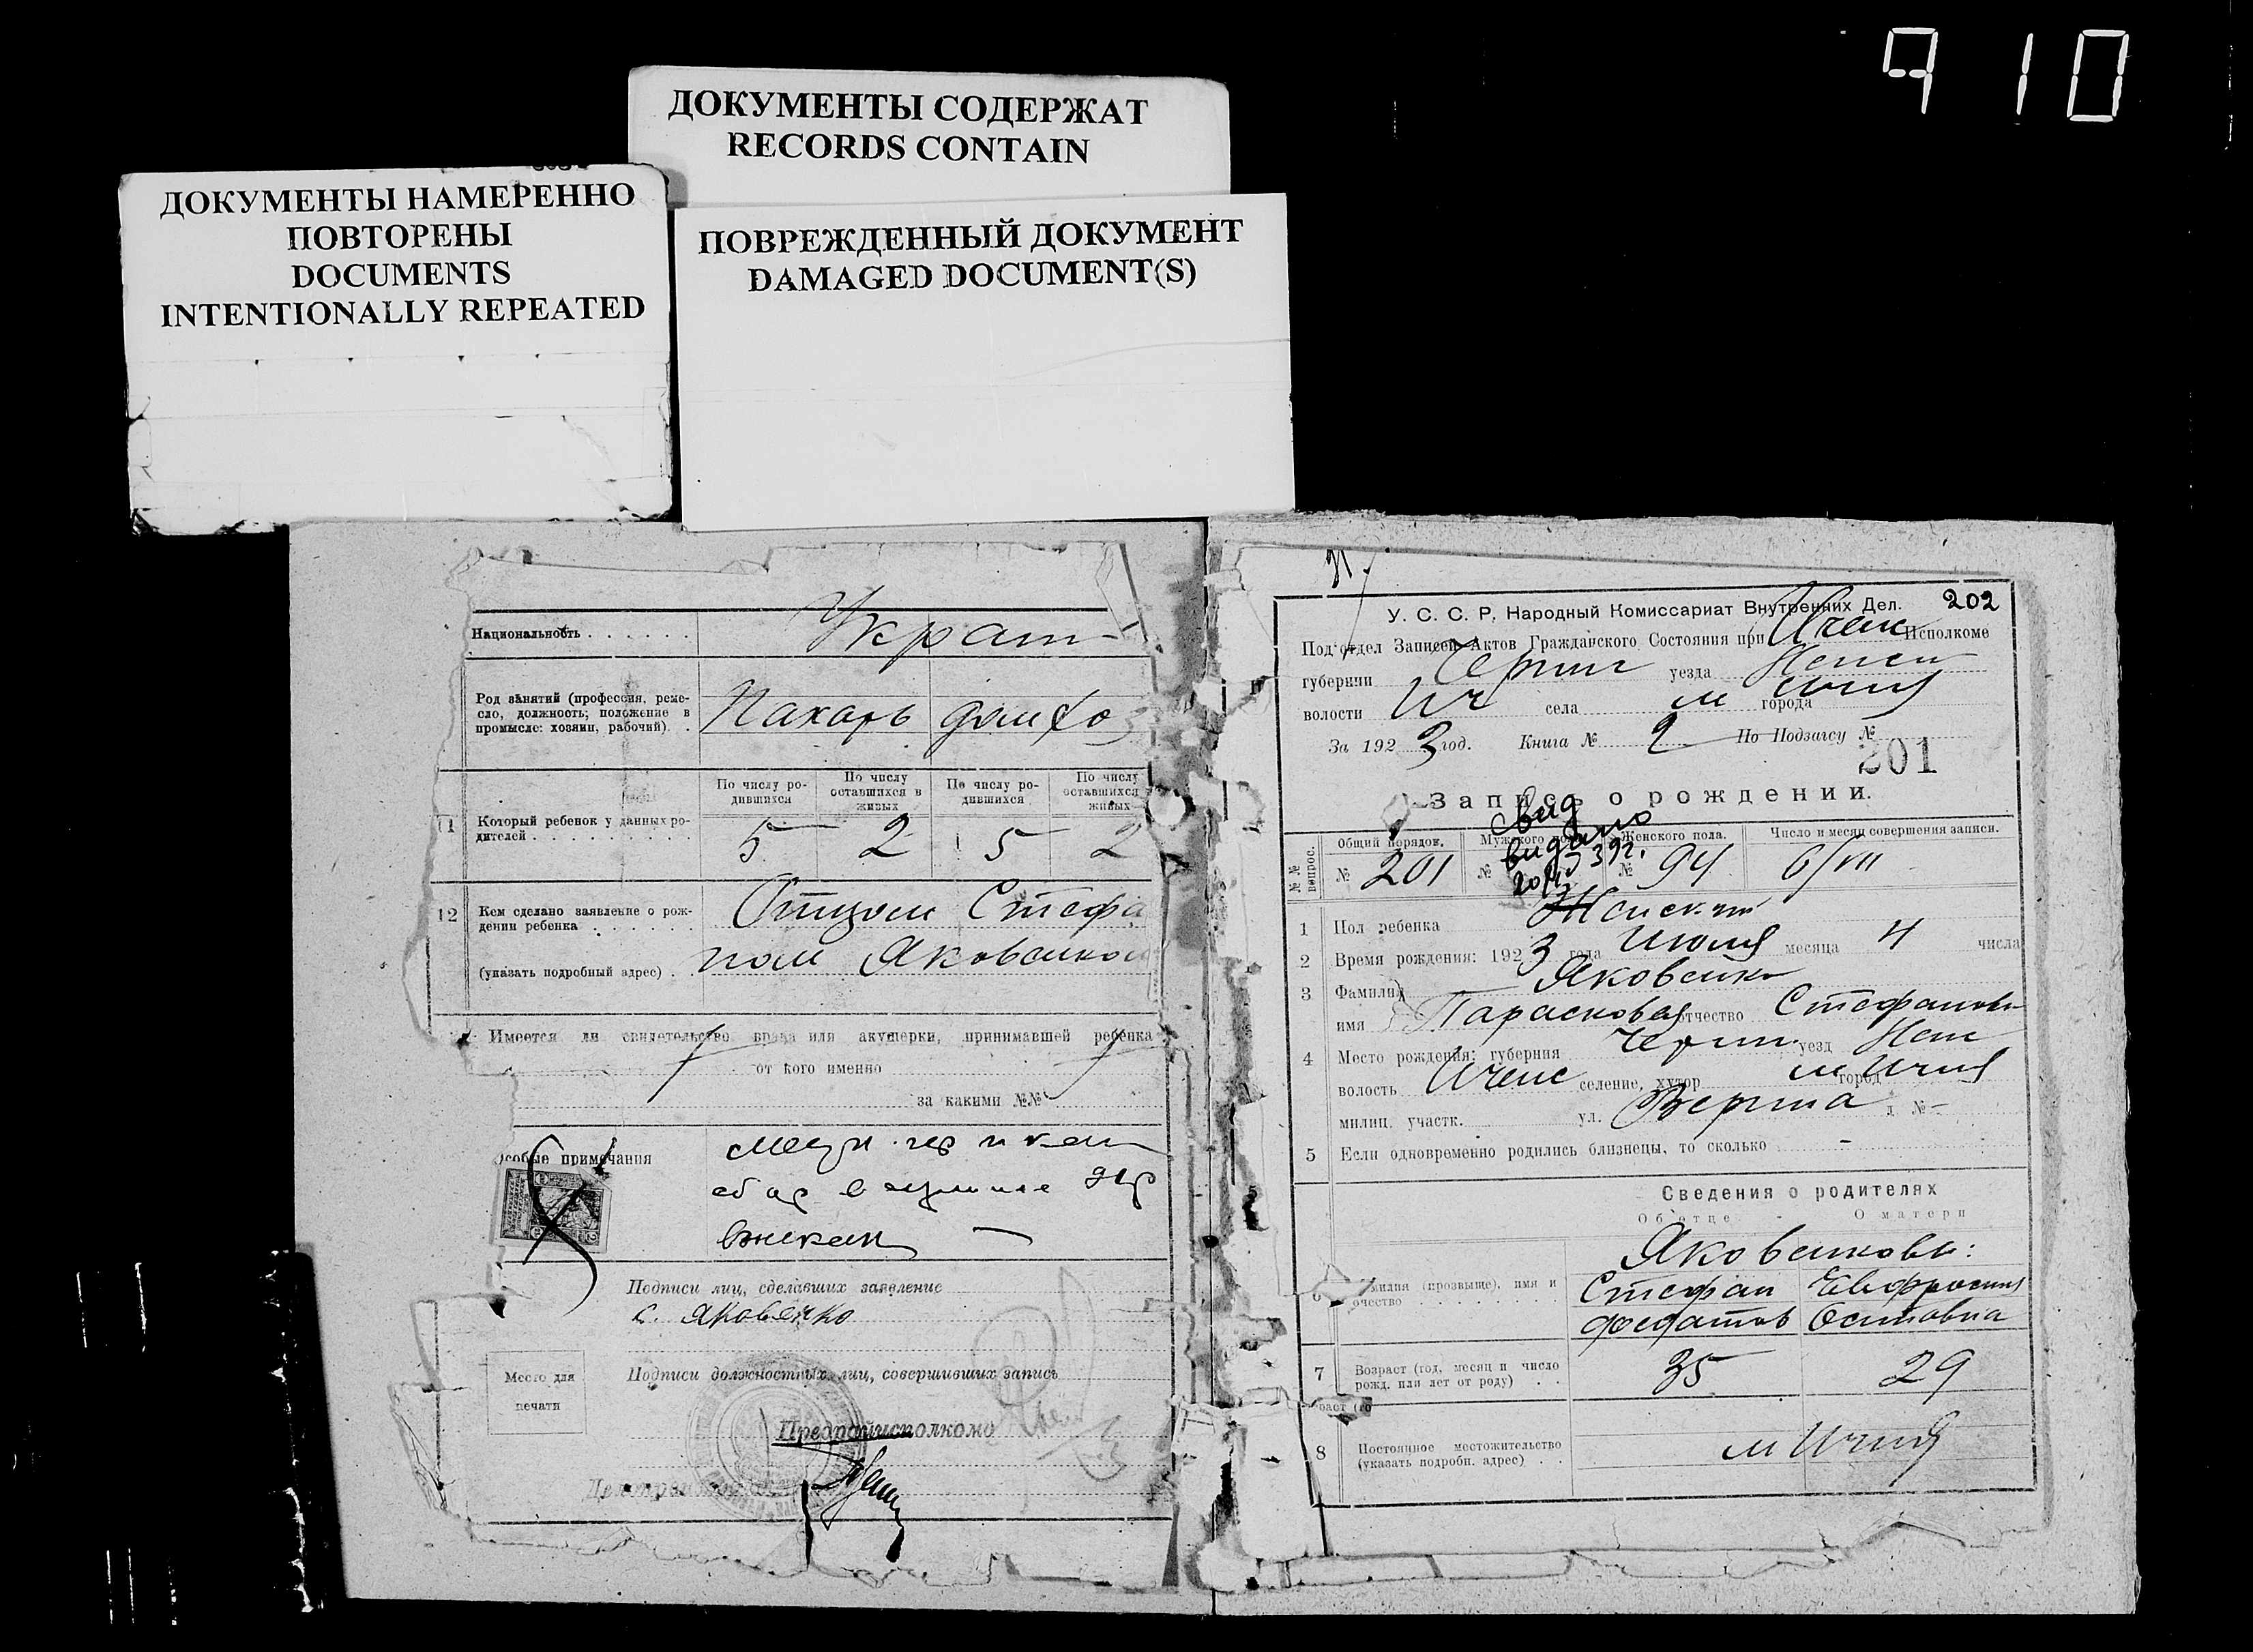 910
ДОКУМЕНТЫ СОДЕРЖАТ
RECORDS CONTAIN
ДОКУМЕНТЫ НАМЕРЕННО
ПОВТОРЕНЫ
DOCUMENTS
INTENTIONALLY REPEATED
ПОВРЕЖДЕННЫЙ ДОКУМЕНТ
DAMAGED DOCUMENT(S)
Национальность . . . . . . Украин
Род занятий (профессия, реме-
сло, должность; положение в
промысле: хозяин, рабочий) . Пахарь домхоз
По числу ро-
дившихся
По числу
оставшихся в
живых
По числу ро-
дившихся
По числу
оставшихся
живых
11 Который ребенок у данных ро-
дителей . . . . . . . . . . 5 2 5 2
12 Кем сделано заявление о рож-
дении ребенка . . . . . . Отцом Стефа
(указать подробный адрес) . ном Яковенком
Имеется ли свидетельство врача или акушерки, принимавшей ребенка
от кого именно
за какими №№
Особые примечания
Подписи лиц, сделавших заявление
С. Яковенко
Место для
печати
Подписи должностных лиц, совершивших запись
Предрайисполкома
202
У. С. С. Р. Народный Комиссариат Внутренних Дел.
Под'отдел Записей Актов Гражданского Состояния при Ичен Исполкоме
губернии Черниг уезда Нежин
волости Ич села м города Ичня
За 1923 год. Книга № 2 По Подзагсу №
201
Запись о рождении.
№№ вопрос.
Общий порядов. Мужского пола. Женского пола. Число и месяц совершения записи.
№ 201 № № 94 6/VII
свид
видано
1 Пол ребенка Женский
2 Время рождения: 1923 года Июля месяца 4 числа
3 Фамилия Яковенко
имя Парасковея отчество Стефановн
4 Место рождения: губерния Черниг. уезд Неж
волость Иченс селение, хутор м город Ичня
милиц. участк. ул. д №-
5 Если одновременно родились близнецы, то сколько -
Сведения о родителях
Об отце - О матери
Яковенковы:
6 Фамилия (прозвище), имя и
отчество . . . . . Стефан Евфросиния
Федотов Осиповна
7 Возраст (год, месяц и число
рожд. или лет от роду) . . 35 29
8 Постоянное местожительство
(указать подробн. адрес) . . м Ичня